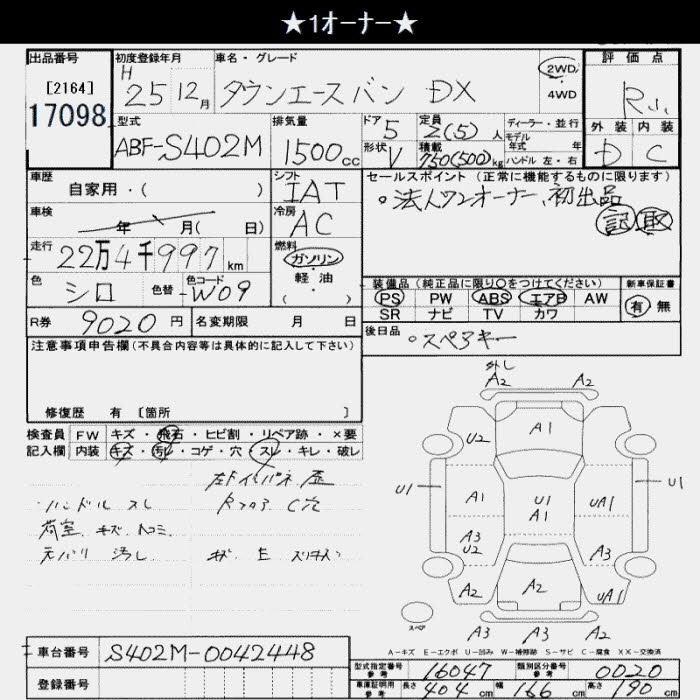 ★1オーナー★
出品番号 初度登録年月 車名・グレード 評価点
[2164]
17098
H 25 12月 タウンエースバン DX
2WD
4WD
R小
外装 内装
D C
型式 排気量 ドア 定員 ディーラー・並行
ABF-S402M 1500cc 5 2(5)人 モデル 年式 年
形状 V 積載 750(500)kg ハンドル 左・右
車歴 シフト セールスポイント (正常に機能するものに限ります)
自家用・( ) IAT
法人ワンオーナー、初出品
記 取
車検 冷房
年 月( 日) AC
走行 燃料
22万4千997km ガソリン
軽油
( )
色 色替 色コード
シロ W09
装備品 (純正品に限り○をつけてください) 新車保証書
PS PW ABS エアB AW 有 無
SR ナビ TV カワ
R券 9020円 名変期限 月 日
後日品
スペアキー
注意事項申告欄(不具合内容等は具体的に記入して下さい)
修復歴 有 [箇所 ]
検査員 FW キズ・飛石・ヒビ割・リペア跡・×要
記入欄 内装 キズ・汚れ・コゲ・穴・スレ・キレ・破レ
ハンドル スレ
Rフロア C穴
荷室 キズ 凹コミ
汚レ
キズ E
外し
A2 A2
A1
U2
U1 U1
A1 U1 UA1
A1
A3 A3
U2
A2 A2 UA1
スペア
A3 A3 A2
A-キズ E-エクボ U-凹み W-補修跡 S-サビ C-腐食 XX-交換済
車台番号 S402M-0042448
登録番号
型式指定番号 参考 16047 類別区分番号 参考 0020
車庫証明用 参考 長さ 404cm 幅 166cm 高さ 190cm